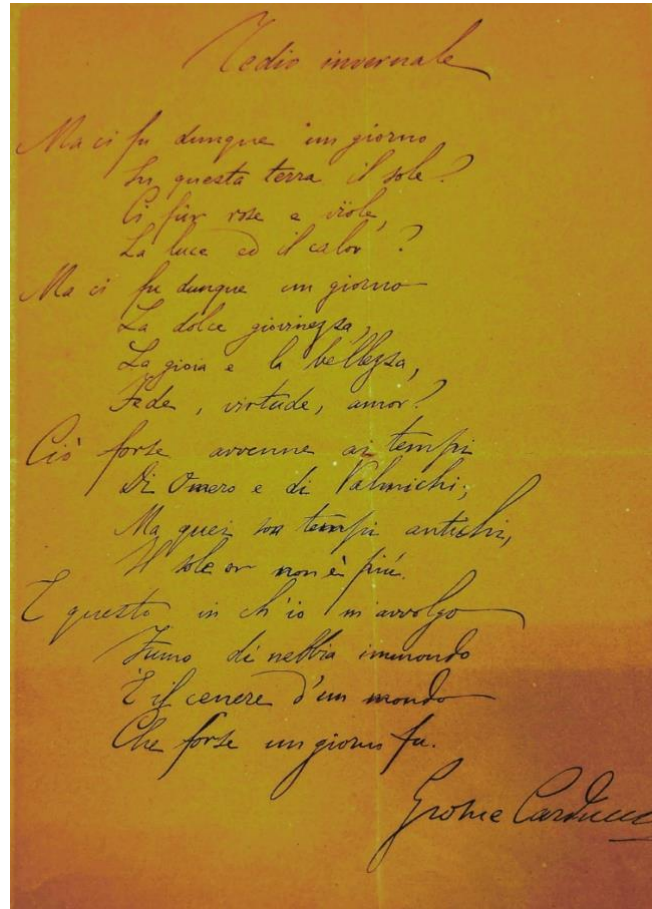 Tedio invernale
Ma ci fu dunque un giorno
Su questa terra il sole?
Ci fûr rose e viole,
La luce ed il calor?
Ma ci fu dunque un giorno
La dolce giovinezza,
La gioia e la bellezza,
Fede, virtude, amor?
Ciò forse avvenne ai tempi
Di Omero e di Valmichi;
Ma quei son tempi antichi,
Il sole or non è più.
E questa in ch'io m'avvolgo
Fumo di nebbia immondo
È il cenere d'un mondo
Che forse un giorno fu.
Carducci